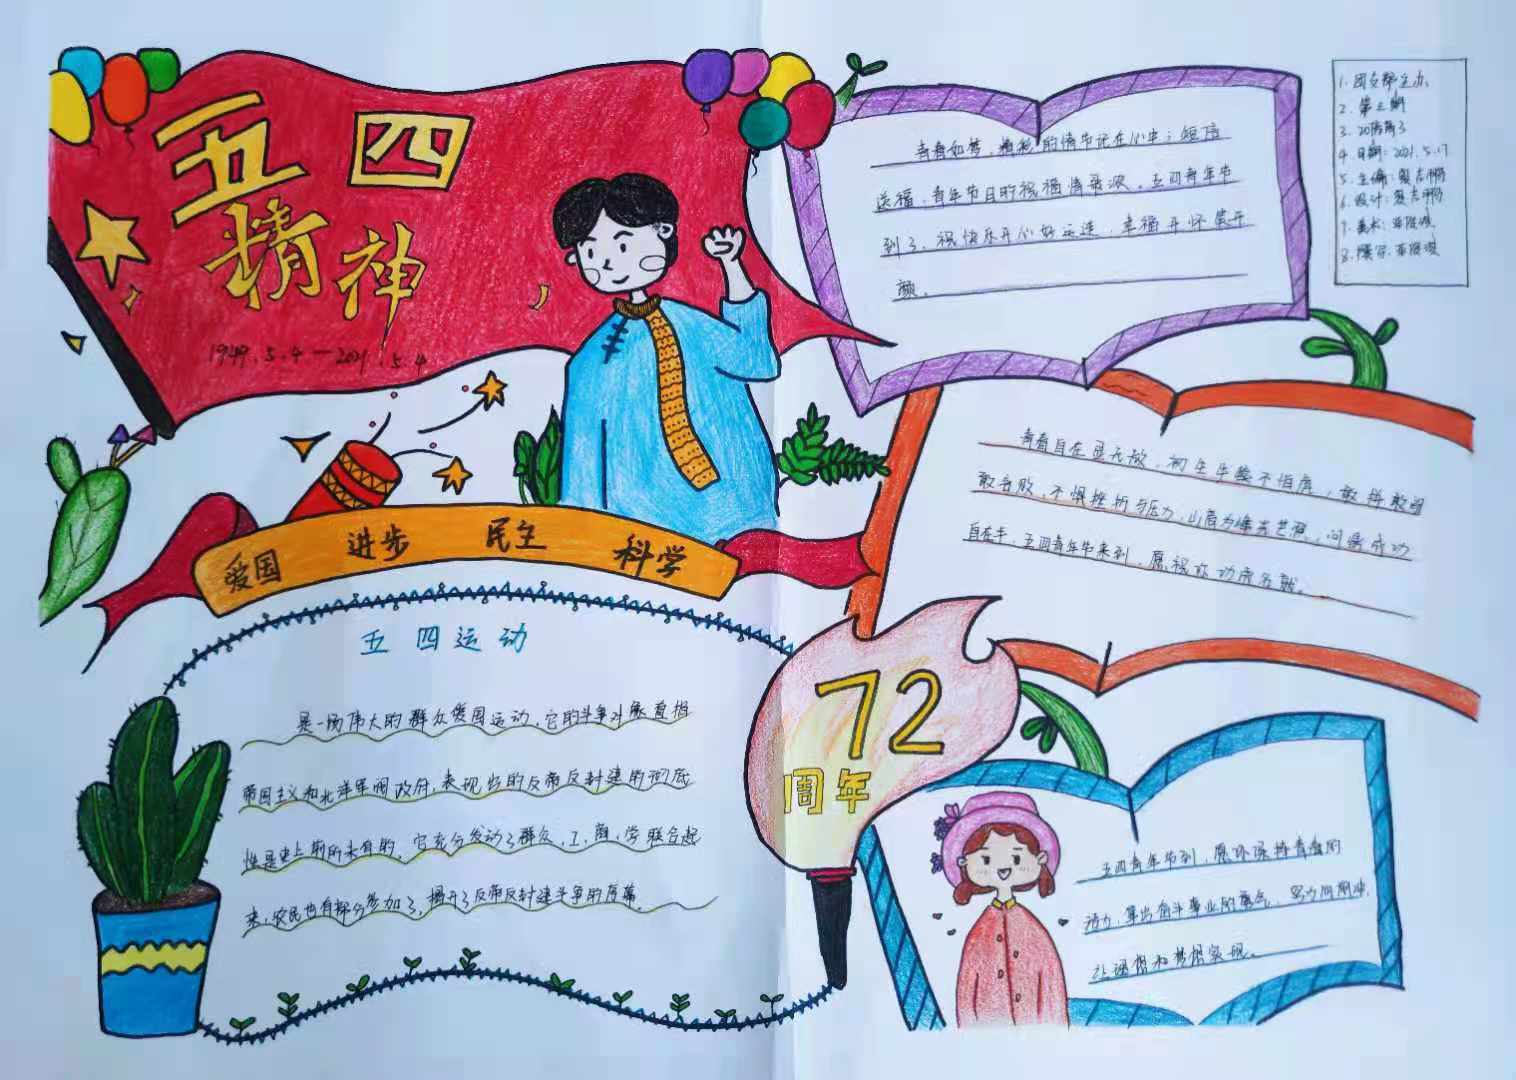 五四
精神
1949.5.4—2021.5.4
爱国 进步 民主 科学
五四运动
是一场伟大的群众爱国运动,它的斗争对象直指
帝国主义和北洋军阀政府,表现出的反帝反封建的彻底
性是史上前所未有的,它充分发动了群众,工,商,学联合起
来,农民也有部分参加了,揭开了反帝反封建斗争的序幕。
72
周年
青春如梦,精彩的情节记在心中;短信
送福,青年节日的祝福情最浓。五四青年节
到了,祝快乐开心好运连,幸福开怀笑开
颜。
青春自在显无敌,初生牛犊不怕虎,敢拼敢闯
敢言败,不惧挫折与压力,山高为峰去艺洞,问鼎成功
自在手,五四青年节来到,愿祝你功成名就。
五四青年节到,愿你保持青春的
活力,拿出奋斗事业的勇气,努力向前冲,
让理想和梦想实现。
1. 团支部主办
2. 第三期
3. 20防商3
4. 日期:2021.5.17
5. 主编:
6. 设计:
7. 美术:
8.